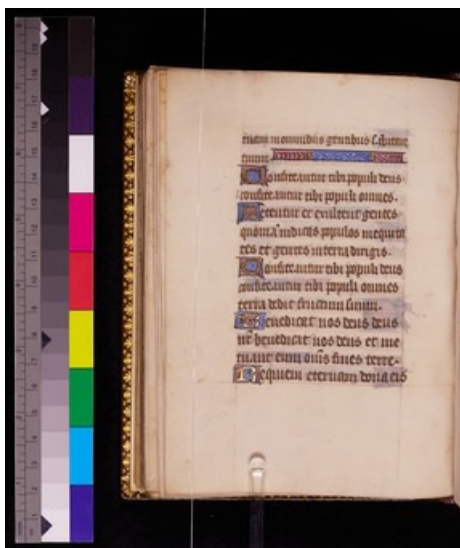 tuam in omnibus gentibus salutare
tuum
Confiteantur tibi populi deus
confiteantur tibi populi omnes.
Letentur et exultent gentes
quoniam iudicas populos in equita
tes et gentes in terra dirigis.
Confiteantur tibi populi deus
confiteantur tibi populi omnes
terra dedit fructum suum.
Benedicat nos deus deus
nr benedicat nos deus et me
tuant eum oms fines terre.
Requiem eternam dona eis